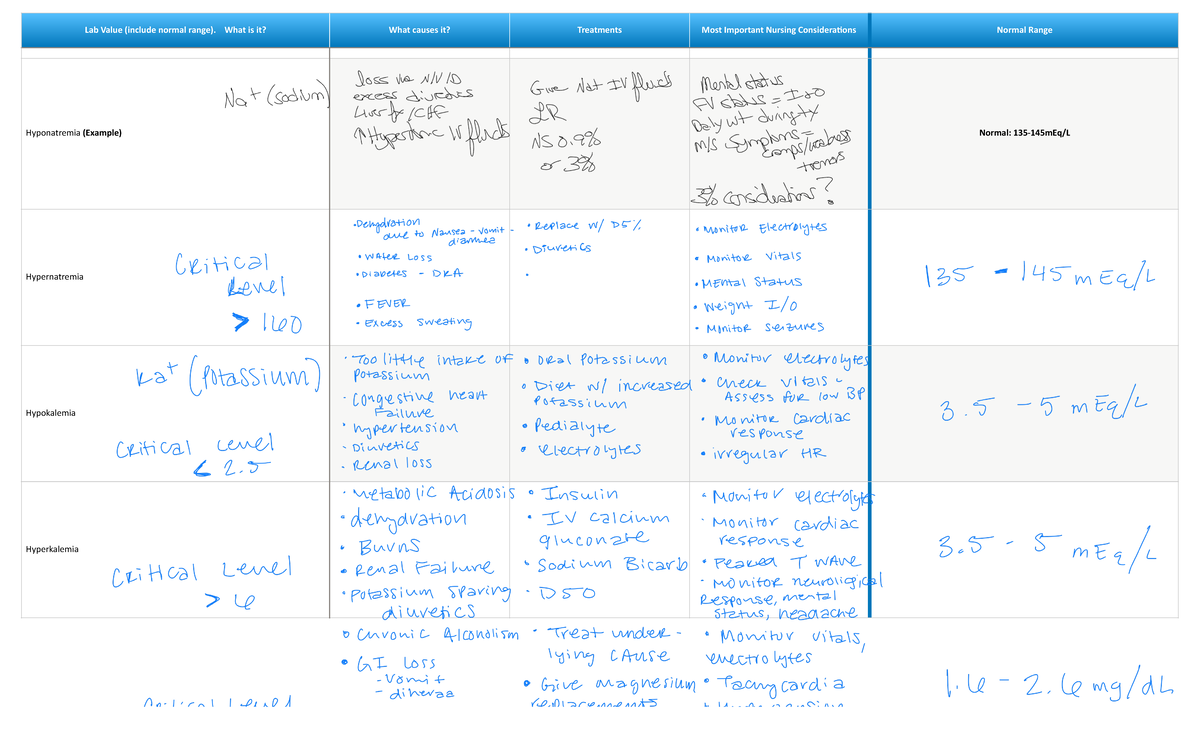 Lab Value (include normal range). What is it?
What causes it?
Treatments
Most Important Nursing Considerations
Normal Range
Hyponatremia (Example)
Na+ (sodium)
loss via N/V/D
excess diuretics
Liver fx/CHF
↑Hypertonic IV fluids
Give Na+ IV fluids
LR
NS 0.9%
or 3%
Mental status
FV status = I+O
Daily wt during tx
M/S Symptoms =
cramps/weakness
tremors
3% considerations?
Normal: 135-145mEq/L
Hypernatremia
Critical
Level
> 160
•Dehydration
due to Nausea - vomit -
diarrhea
• Water Loss
• Diabetes - DKA
• FEVER
• Excess Sweating
• Replace w/ D5%
• Diuretics
•
• Monitor Electrolytes
• Monitor Vitals
• Mental Status
• Weight I/O
• Monitor Seizures
135 - 145 mEq/L
Hypokalemia
Ka+ (Potassium)
Critical Level
< 2.5
• Too little intake of
Potassium
• Congestive heart
Failure
• hypertension
- Diuretics
• Renal loss
• Oral Potassium
• Diet w/ increased
Potassium
• Pedialyte
• electrolytes
• Monitor electrolytes
• Check Vitals -
Assess for low BP
• Monitor Cardiac
response
• irregular HR
3.5 - 5 mEq/L
Hyperkalemia
Critical Level
> 6
• Metabolic Acidosis
• dehydration
• Burns
• Renal Failure
• Potassium Sparing
diuretics
• Insulin
• IV calcium
gluconate
• Sodium Bicarb
• D50
• Monitor electrolytes
• Monitor cardiac
response
• Peaked T WAVE
• Monitor neuroligical
Response, mental
Status, headache
3.5 - 5 mEq/L
Critical Level
• Chronic Alcoholism
• GI Loss
- Vomit
- diheraa
• Treat under-
lying CAuse
• Give magnesium
replacements
• Monitor Vitals,
electrolytes
• Tachycardia
1.6 - 2.6 mg/dL